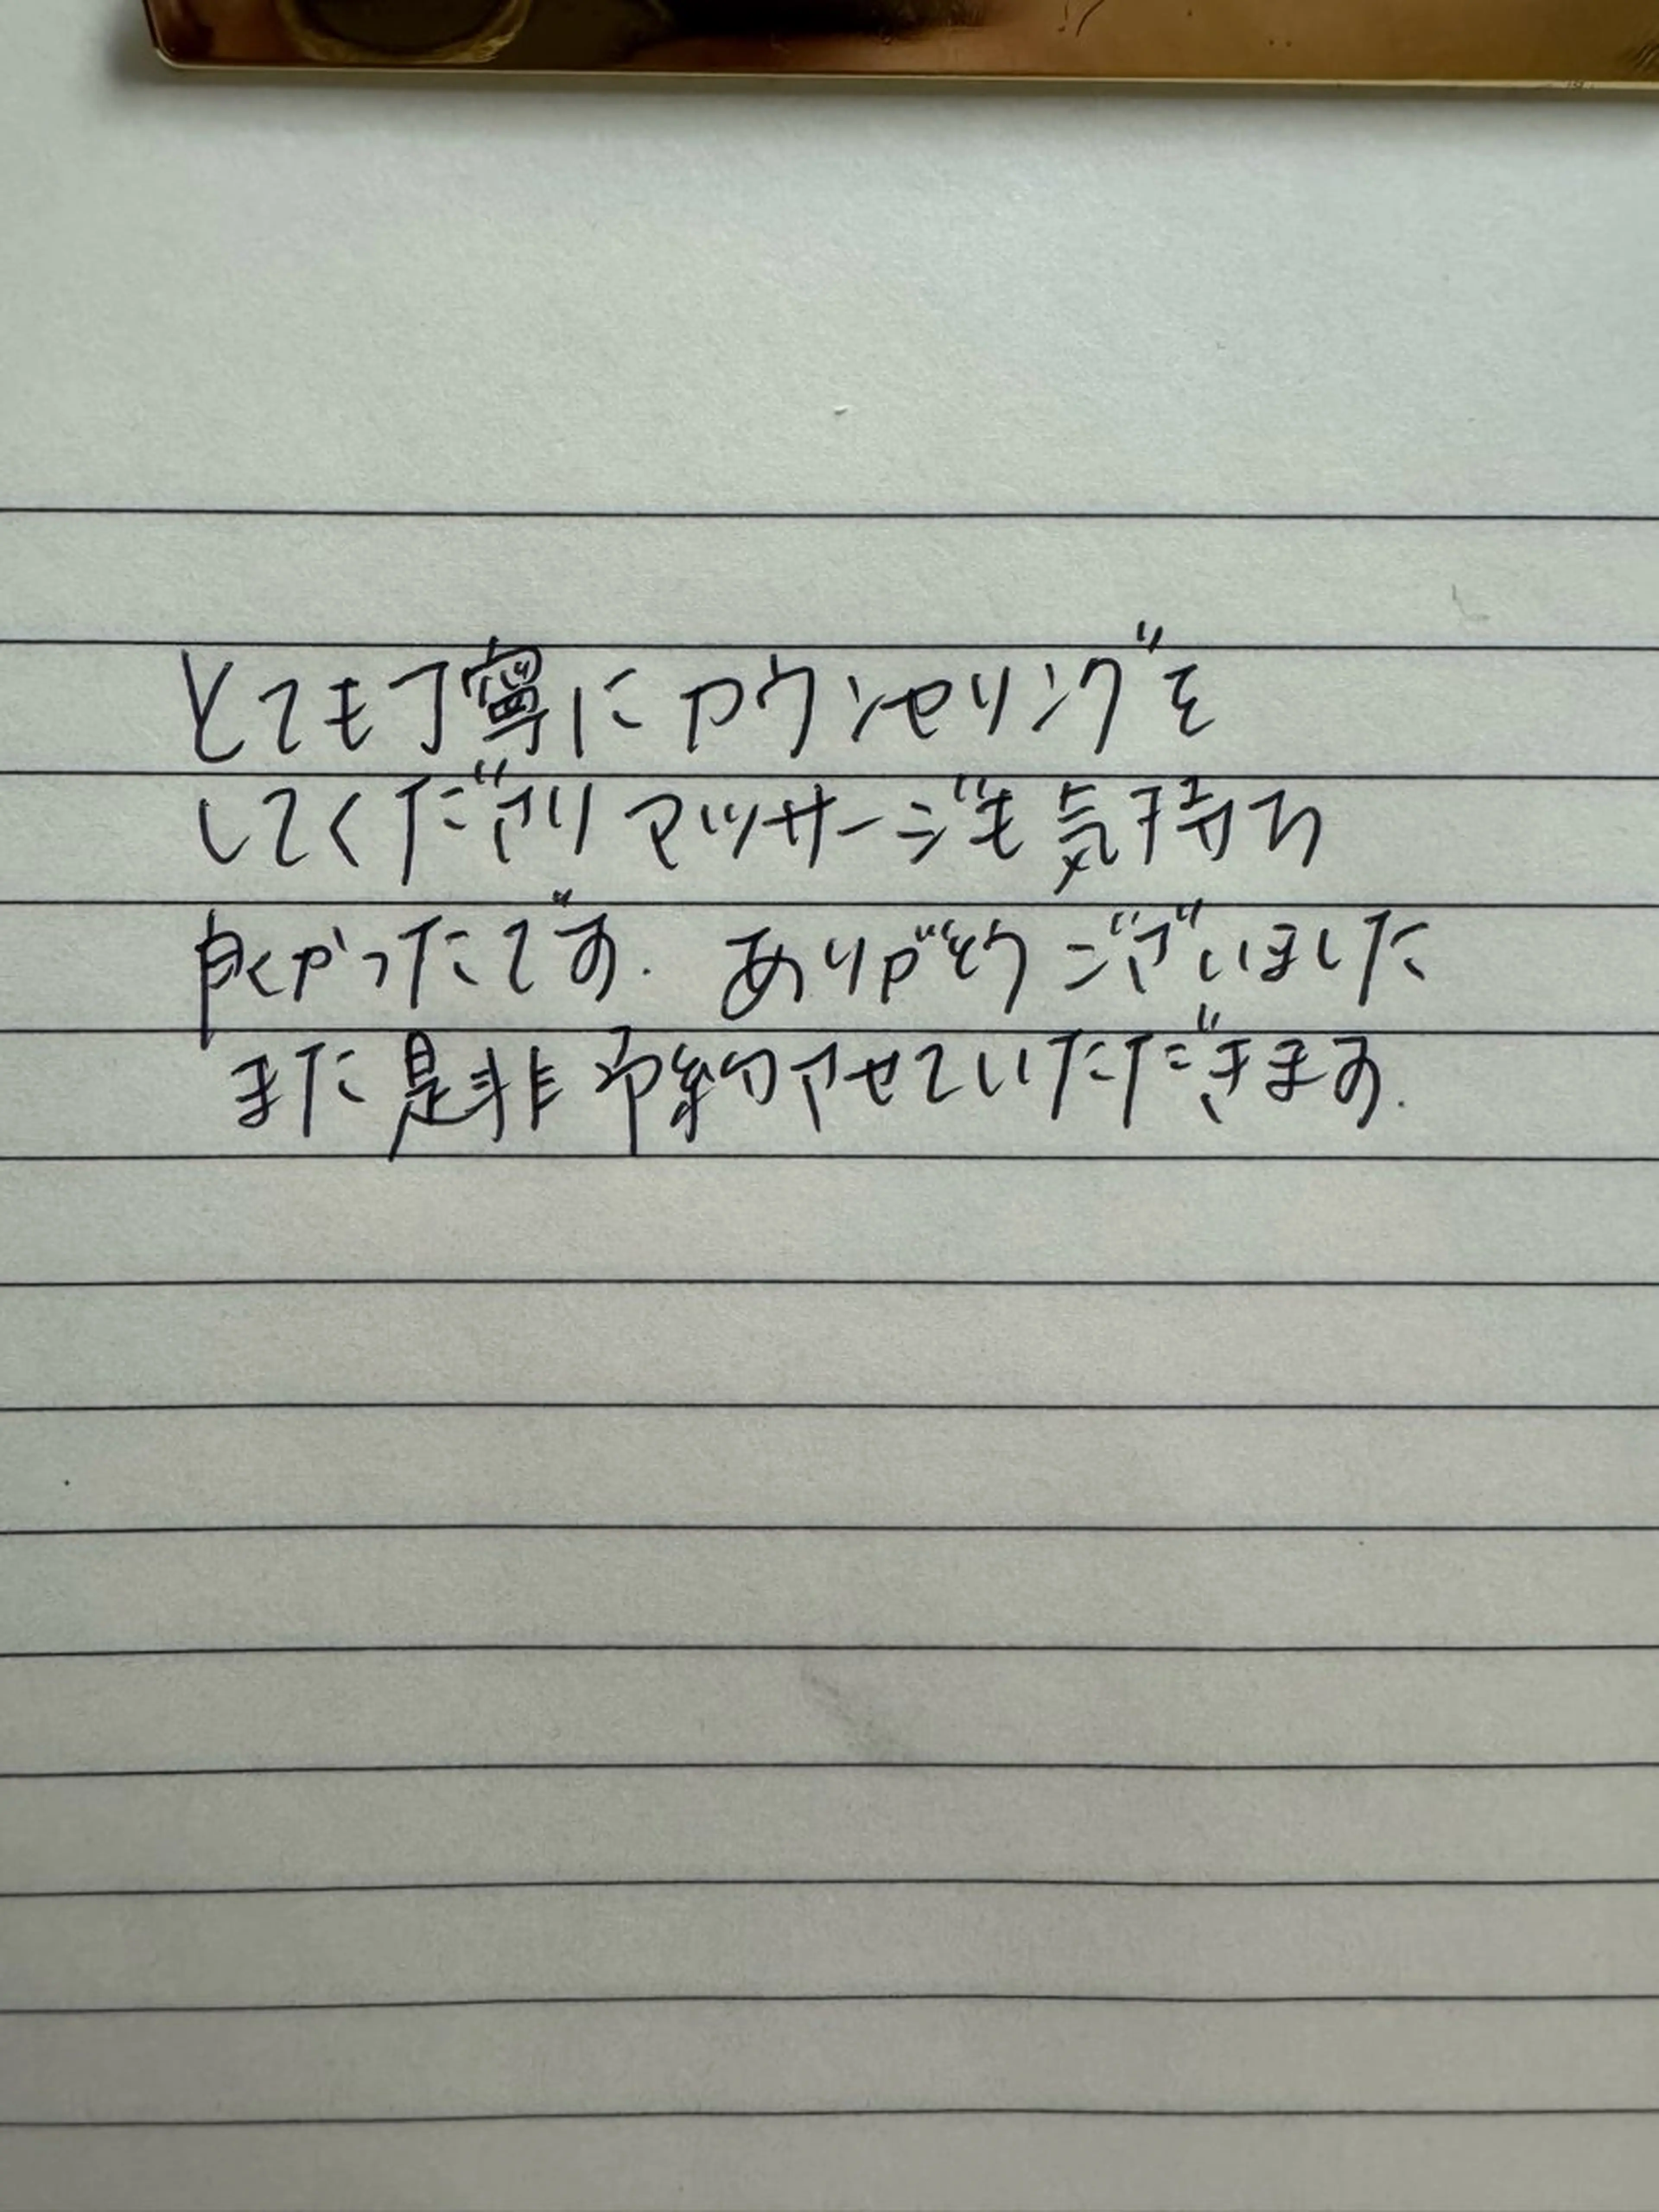 とても丁寧にカウンセリングを
してくださりマッサージも気持ち
良くかったです. ありがとうございました
また是非予約させていただきます.